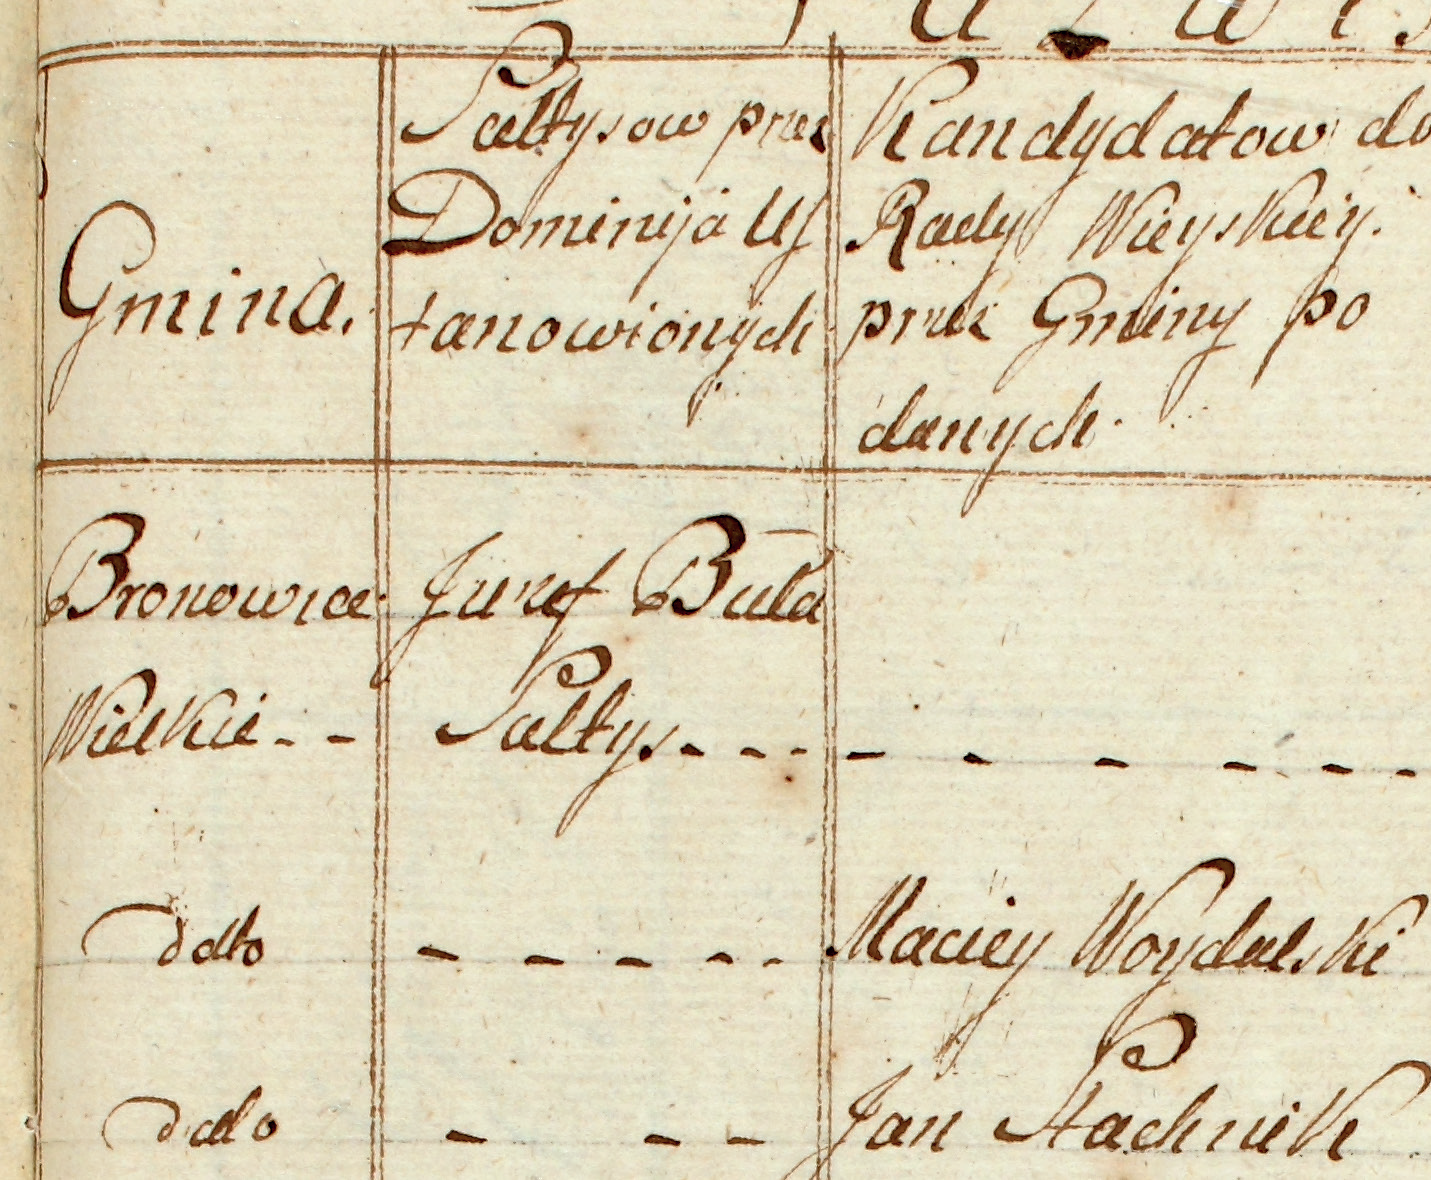 Gmina.
Sałtysow przez
Dominija Us
tanowionych
Kandydatow do
Rady Wieyskiey.
przez Gminy po
danych.
Bronowice
Wielkie - -
Juzef Buła
Sałtys - - - - - - - - -
Detto - - - - - Maciey Woydalski
Detto - - - Jan Stachnik